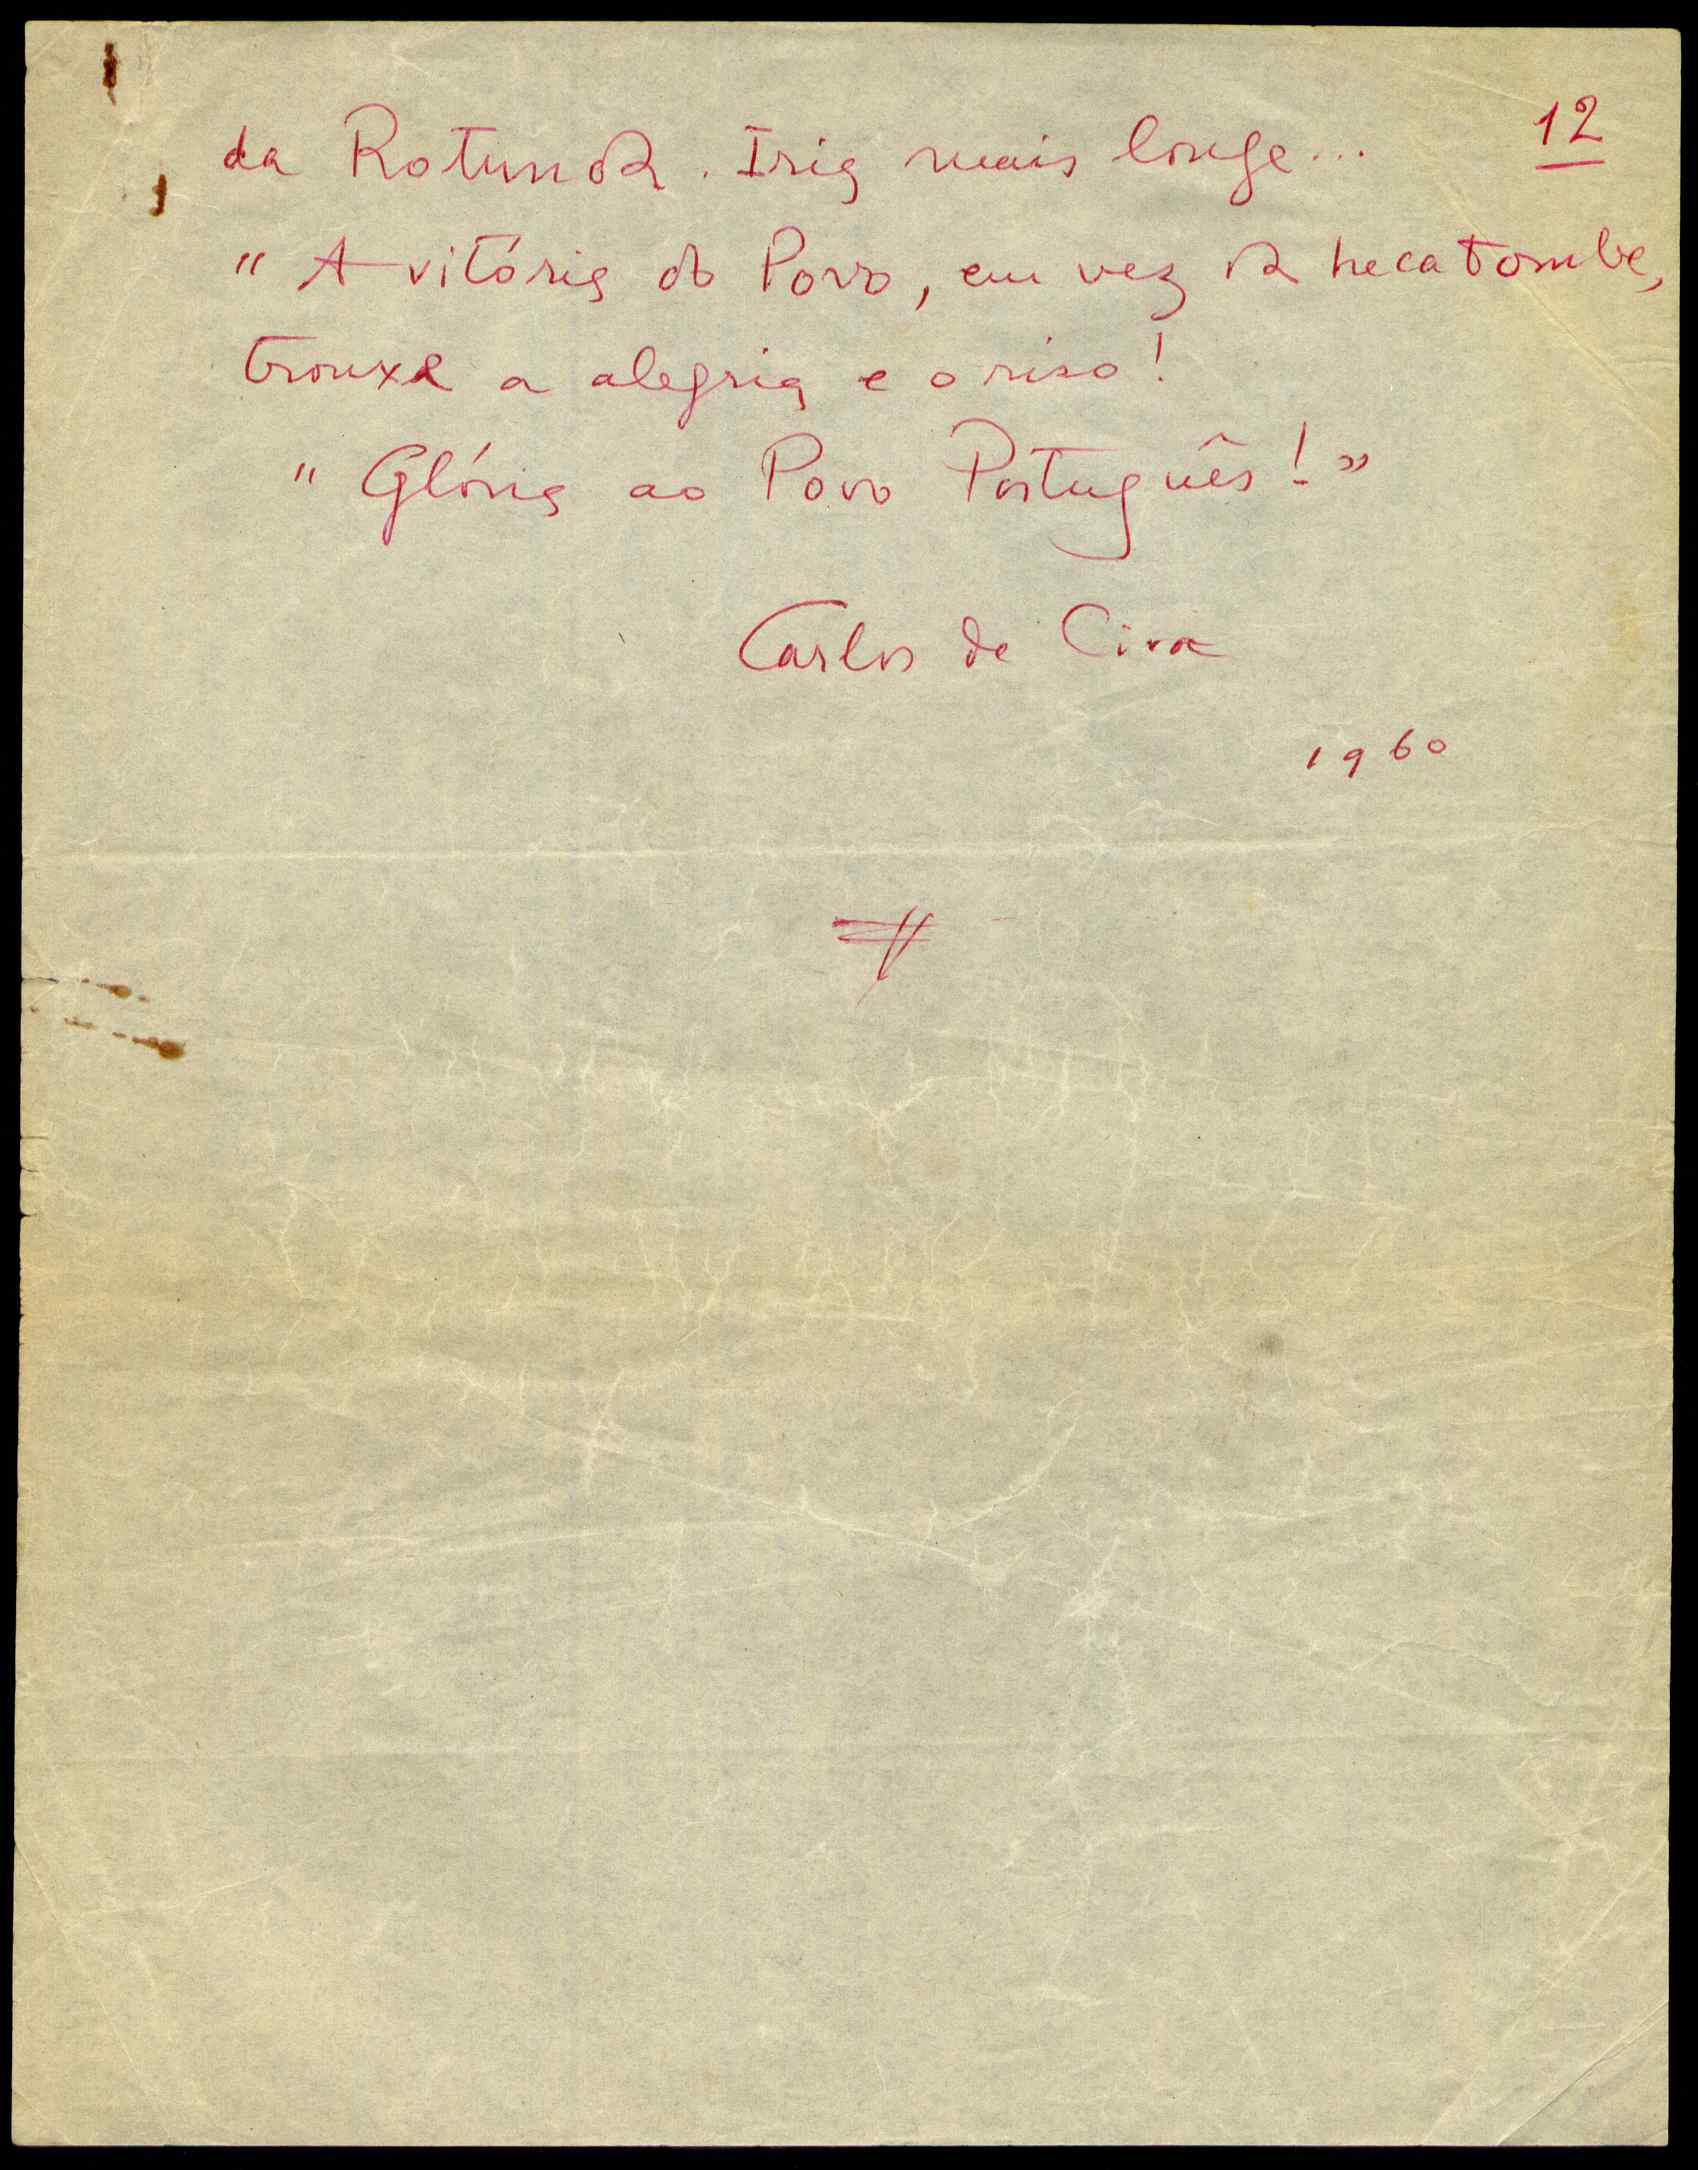 12
da Rotunda. Iria mais longe...
" A vitória do Povo, em vez da hecatombe,
trouxe a alegria e o riso!
" Glória ao Povo Português! "
Carlos de
1960